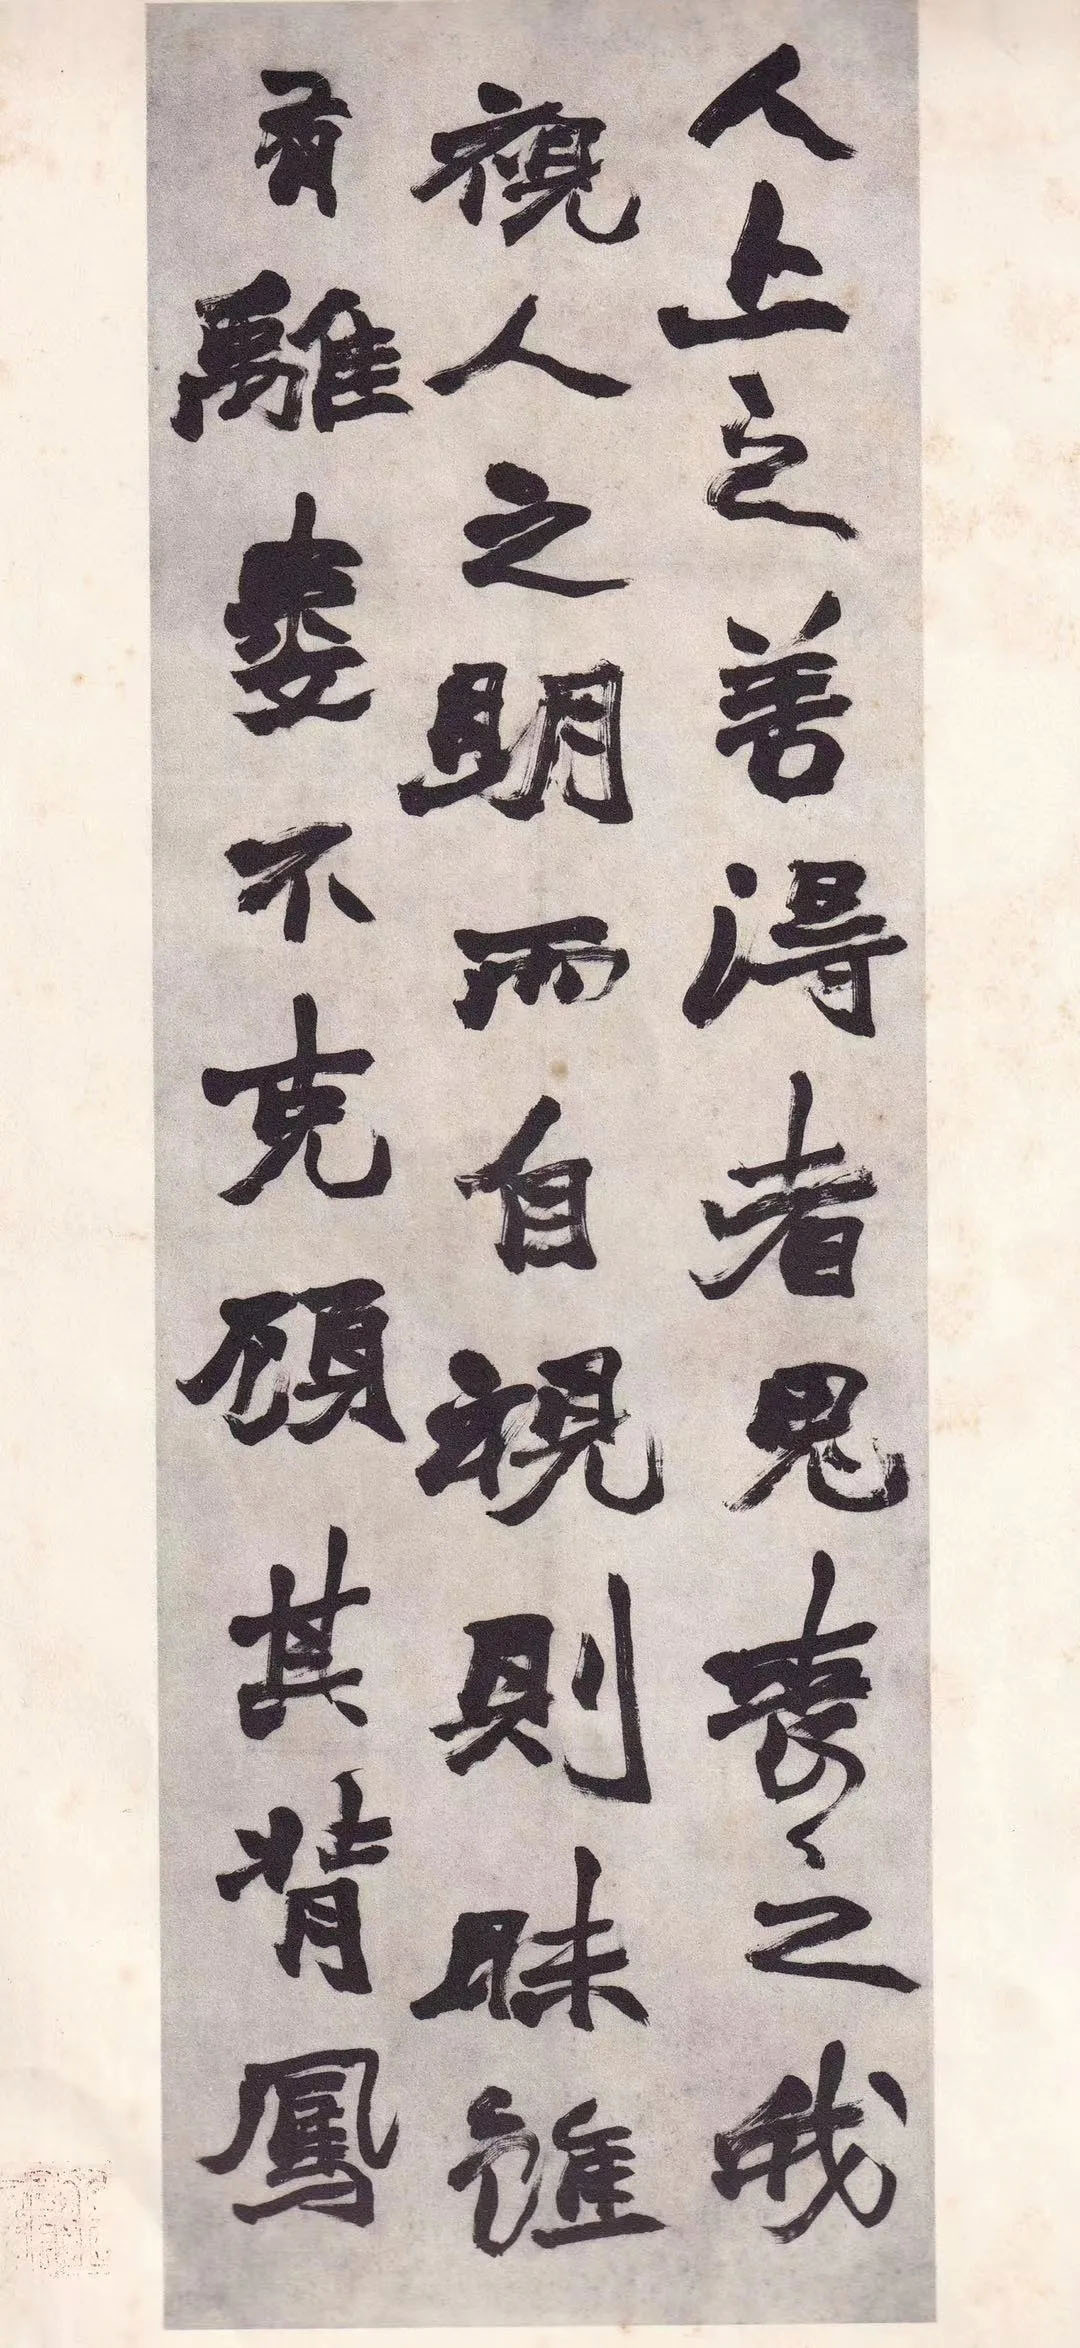 人上之善得者鬼喪之我
視人之明而自視則昧雖
有離婁不克顧其背鳳